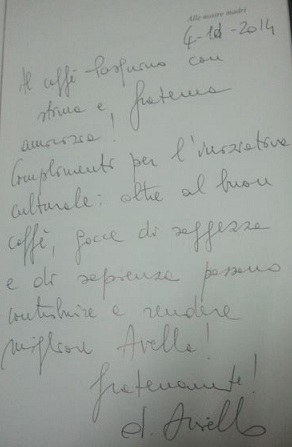 Alle nostre madri
4-10-2014
Al caffè Pasquino con
stima e fraterna
amicizia!
Complimenti per l'iniziativa
culturale: oltre al buon
caffè, gocce di saggezza
e di sapienza possono
contribuire a rendere
migliore Avella!
Fraternamente!
d. Aniello